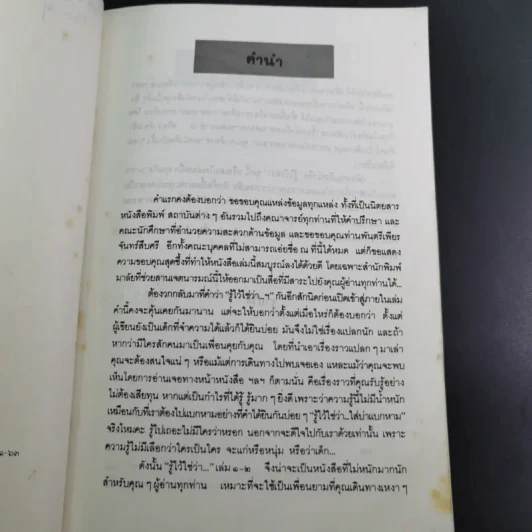 คำนำ
คำแรกคงต้องบอกว่า ขอขอบคุณแหล่งข้อมูลทุกแหล่ง ทั้งที่เป็นนิตยสาร
หนังสือพิมพ์ สถาบันต่าง ๆ อันรวมไปถึงคณาจารย์ทุกท่านที่ให้คำปรึกษา และ
คณะนักศึกษาที่อำนวยความสะดวกด้านข้อมูล และขอขอบคุณท่านพันตรีเพียร
จันทร์สืบศรี อีกทั้งคณะบุคคลที่ไม่สามารถเอ่ยชื่อ ณ ที่นี้ได้หมด แต่ก็ขอแสดง
ความขอบคุณสุดซึ้งที่ทำให้หนังสือเล่มนี้สมบูรณ์ลงได้ด้วยดี โดยเฉพาะสำนักพิมพ์
มาลัยที่ช่วยสานเจตนารมณ์นี้ให้ออกมาเป็นสื่อที่มีสาระไปยังคุณผู้อ่านทุกท่านได้...
ต้องวกกลับมาที่คำว่า "รู้ไว้ใช่ว่า...ๆ" กันอีกสักนิดก่อนเปิดเข้าสู่ภายในเล่ม
คำนี้คงจะคุ้นเคยกันมานาน แต่จะให้บอกว่าตั้งแต่เมื่อไหร่ก็ต้องบอกว่า ตั้งแต่
ผู้เขียนยังเป็นเด็กที่จำความได้แล้วก็ได้ยินบ่อย มันจึงไม่ใช่เรื่องแปลกนัก และถ้า
หากว่ามีใครสักคนมาเป็นเพื่อนคุยกับคุณ โดยที่นำเอาเรื่องราวแปลก ๆ มาเล่า
คุณจะต้องสนใจแน่ ๆ หรือแม้แต่การเดินทางไปพบเจอเอง และแม้ว่าคุณจะพบ
เห็นโดยการอ่านเจอทางหน้าหนังสือ ฯลฯ ก็ตามนั่น คือเรื่องราวที่คุณรับรู้อย่าง
ไม่ต้องเสียทุน หากแต่เป็นกำไรที่ได้รู้ รู้มาก ๆ ยิ่งดี เพราะว่าความรู้นี้ไม่มีน้ำหนัก
เหมือนกับที่เราต้องไปแบกหามอย่างที่คำได้ยินกันบ่อย ๆ "รู้ไว้ใช่ว่า...ใส่บ่าแบกหาม"
จริงไหมคะ รู้ไปเถอะไม่มีใครว่าหรอก นอกจากจะดีใจไปกับเราด้วยเท่านั้น เพราะ
ความรู้ไม่มีเลือกว่าใครเป็นใคร จะแก่หรือหนุ่ม หรือว่าเด็ก...
ดังนั้น "รู้ไว้ใช่ว่า..." เล่ม ๑-๒ จึงน่าจะเป็นหนังสือที่ไม่หนักมากนัก
สำหรับคุณ ๆ ผู้อ่านทุกท่าน เหมาะที่จะใช้เป็นเพื่อนยามที่คุณเดินทางเหงา ๆ
๑-๖๓